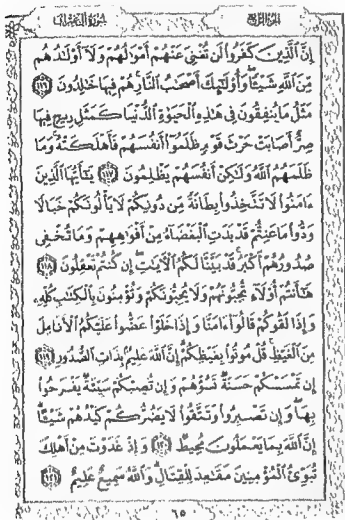 الجزء الرابع سورة آل عمران
إِنَّ ٱلَّذِينَ كَفَرُوا۟ لَن تُغْنِىَ عَنْهُمْ أَمْوَٰلُهُمْ وَلَآ أَوْلَٰدُهُم
مِّنَ ٱللَّهِ شَيْـًٔا وَأُو۟لَٰٓئِكَ أَصْحَٰبُ ٱلنَّارِ هُمْ فِيهَا خَٰلِدُونَ ١١٦
مَثَلُ مَا يُنفِقُونَ فِى هَٰذِهِ ٱلْحَيَوٰةِ ٱلدُّنْيَا كَمَثَلِ رِيحٍ فِيهَا
صِرٌّ أَصَابَتْ حَرْثَ قَوْمٍ ظَلَمُوٓا۟ أَنفُسَهُمْ فَأَهْلَكَتْهُ وَمَا
ظَلَمَهُمُ ٱللَّهُ وَلَٰكِنْ أَنفُسَهُمْ يَظْلِمُونَ ١١٧ يَٰٓأَيُّهَا ٱلَّذِينَ
ءَامَنُوا۟ لَا تَتَّخِذُوا۟ بِطَانَةً مِّن دُونِكُمْ لَا يَأْلُونَكُمْ خَبَالًا
وَدُّوا۟ مَا عَنِتُّمْ قَدْ بَدَتِ ٱلْبَغْضَآءُ مِنْ أَفْوَٰهِهِمْ وَمَا تُخْفِى
صُدُورُهُمْ أَكْبَرُ قَدْ بَيَّنَّا لَكُمُ ٱلْءَايَٰتِ إِن كُنتُمْ تَعْقِلُونَ ١١٨
هَٰٓأَنتُمْ أُو۟لَآءِ تُحِبُّونَهُمْ وَلَا يُحِبُّونَكُمْ وَتُؤْمِنُونَ بِٱلْكِتَٰبِ كُلِّهِۦ
وَإِذَا لَقُوكُمْ قَالُوٓا۟ ءَامَنَّا وَإِذَا خَلَوْا۟ عَضُّوا۟ عَلَيْكُمُ ٱلْأَنَامِلَ
مِنَ ٱلْغَيْظِ قُلْ مُوتُوا۟ بِغَيْظِكُمْ إِنَّ ٱللَّهَ عَلِيمٌۢ بِذَاتِ ٱلصُّدُورِ ١١٩
إِن تَمْسَسْكُمْ حَسَنَةٌ تَسُؤْهُمْ وَإِن تُصِبْكُمْ سَيِّئَةٌ يَفْرَحُوا۟
بِهَا وَإِن تَصْبِرُوا۟ وَتَتَّقُوا۟ لَا يَضُرُّكُمْ كَيْدُهُمْ شَيْـًٔا
إِنَّ ٱللَّهَ بِمَا يَعْمَلُونَ مُحِيطٌ ١٢٠ وَإِذْ غَدَوْتَ مِنْ أَهْلِكَ
تُبَوِّئُ ٱلْمُؤْمِنِينَ مَقَٰعِدَ لِلْقِتَالِ وَٱللَّهُ سَمِيعٌ عَلِيمٌ ١٢١
٦٥